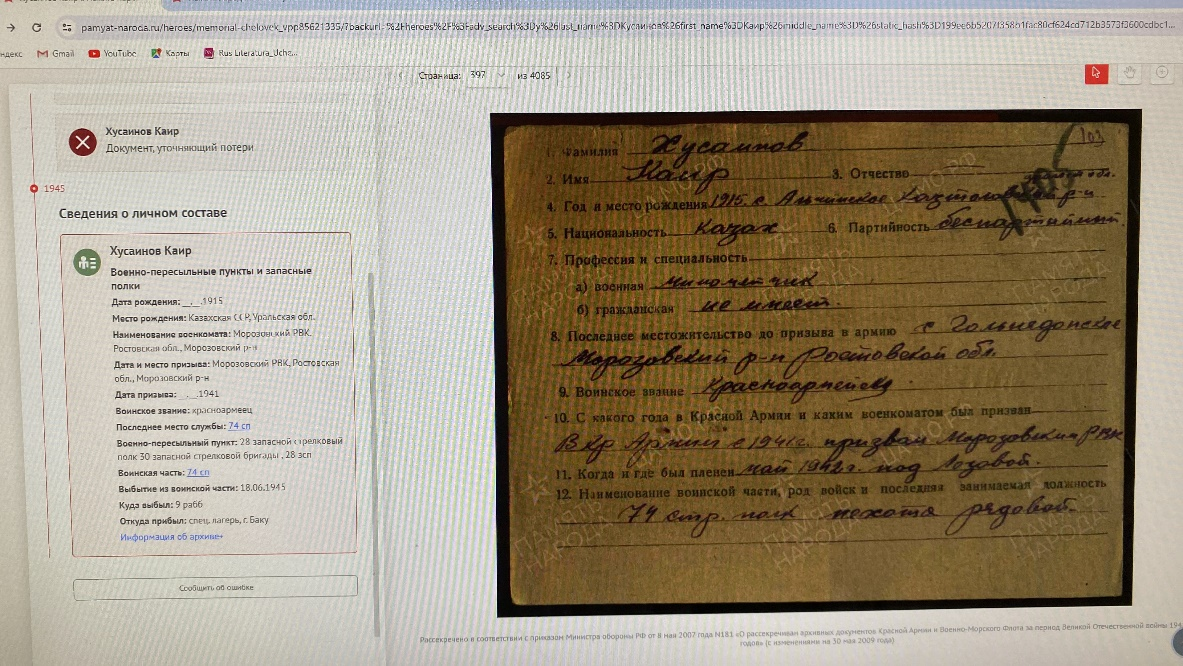 pamyat-naroda.ru/heroes/memorial-chelovek_vpp85621335/?backurl=%2Fheroes%2F%3Fadv_search%3Dy%26last_name%3DХусаинов%26first_name%3DКаир%26middle_name%3D%26static_hash%3D
Gmail YouTube Карты Rus Literatura_Uche...
Страница: 397 из 4085
Хусаинов Каир
Документ, уточняющий потери
1945
Сведения о личном составе
Хусаинов Каир
Военно-пересыльные пункты и запасные
полки
Дата рождения: __.__.1915
Место рождения: Казахская ССР, Уральская обл.
Наименование военкомата: Морозовский РВК,
Ростовская обл., Морозовский р-н
Дата и место призыва: Морозовский РВК, Ростовская
обл., Морозовский р-н
Дата призыва: __.__.1941
Воинское звание: красноармеец
Последнее место службы: 74 сп
Военно-пересыльный пункт: 28 запасной стрелковый
полк 30 запасной стрелковой бригады , 28 зсп
Воинская часть: 74 сп
Выбытие из воинской части: 18.06.1945
Куда выбыл: 9 рабб
Откуда прибыл: спец. лагерь, г. Баку
Информация об архиве+
Сообщить об ошибке
103
1. Фамилия Хусаинов
2. Имя Каир 3. Отчество
4. Год и место рождения 1915. с. р-н
5. Национальность Казах 6. Партийность беспартийный.
7. Профессия и специальность
а) военная минометчик
б) гражданская не имеет.
8. Последнее местожительство до призыва в армию с
Морозовский р-н Ростовской обл.
9. Воинское звание Красноармеец
10. С какого года в Красной Армии и каким военкоматом был призван
В Кр Армии с 1941г. призван Морозовским РВК
11. Когда и где был пленен май 1942г. под Лозовой.
12. Наименование воинской части, род войск и последняя занимаемая должность
74 стр. полк пехота рядовой.
ПАМЯТЬ НАРОДА
Рассекречено в соответствии с приказом Министра обороны РФ от 8 мая 2007 года N181 «О рассекречивании архивных документов Красной Армии и Военно-Морского Флота за период Великой Отечественной войны 194
годов» (с изменениями на 30 мая 2009 года)